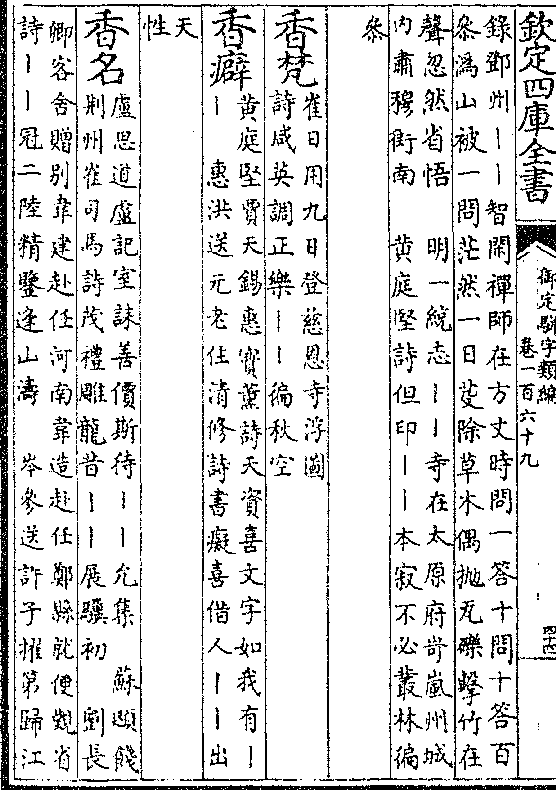 欽定四庫全書
御定駢字類編
卷一百六十九
錄鄧州丨丨智閑禪師在方丈時問一答十問十答百
叅溈山被一問茫然一日芟除草木偶抛瓦礫擊竹在
聲忽然省悟　明一統志丨丨寺在太原府岢嵐州城
内肅穆街南　黄庭堅詩但印丨丨本寂不必叢林徧
叅
香梵
崔日用九日登慈恩寺浮圖
詩咸英調正樂丨丨徧秋空
香癖
黄庭堅賈天錫惠寳薫詩天資喜文字如我有丨
丨　惠洪送元老住清修詩書癡喜借人丨丨出
天
性
香名
盧思道盧記室誄善價斯待丨丨允集　蘇頲餞
荆州崔司馬詩茂禮雕龍昔丨丨展驥初　劉長
卿客舍贈别韋建赴任河南韋造赴任鄭縣就便覲省
詩丨丨冠二陸精鑒逢山濤　岑參送許子擢第歸江